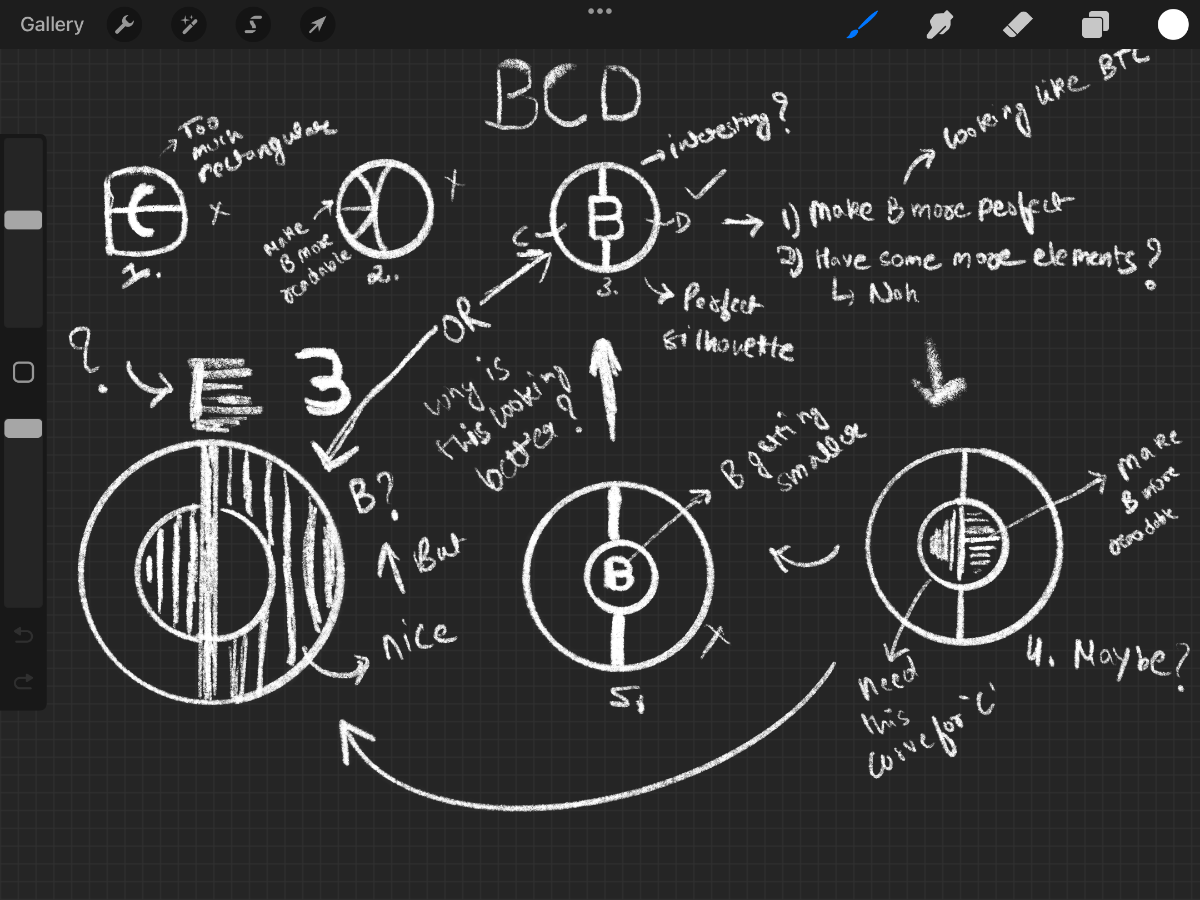 Gallery
BCD
Too
much
rectangular
x
1.
Make
B more
readable
x
2.
→ interesting?
B
C
D
3.
Perfect
silhouette
looking like BTC
1) Make B more perfect
2) Have some more elements?
Nah
OR
?
E 3
Why is
this looking
better?
B?
But
nice
B getting
smaller
B
x
5,
Make
B more
readable
4. Maybe?
need
this
curve for 'C'